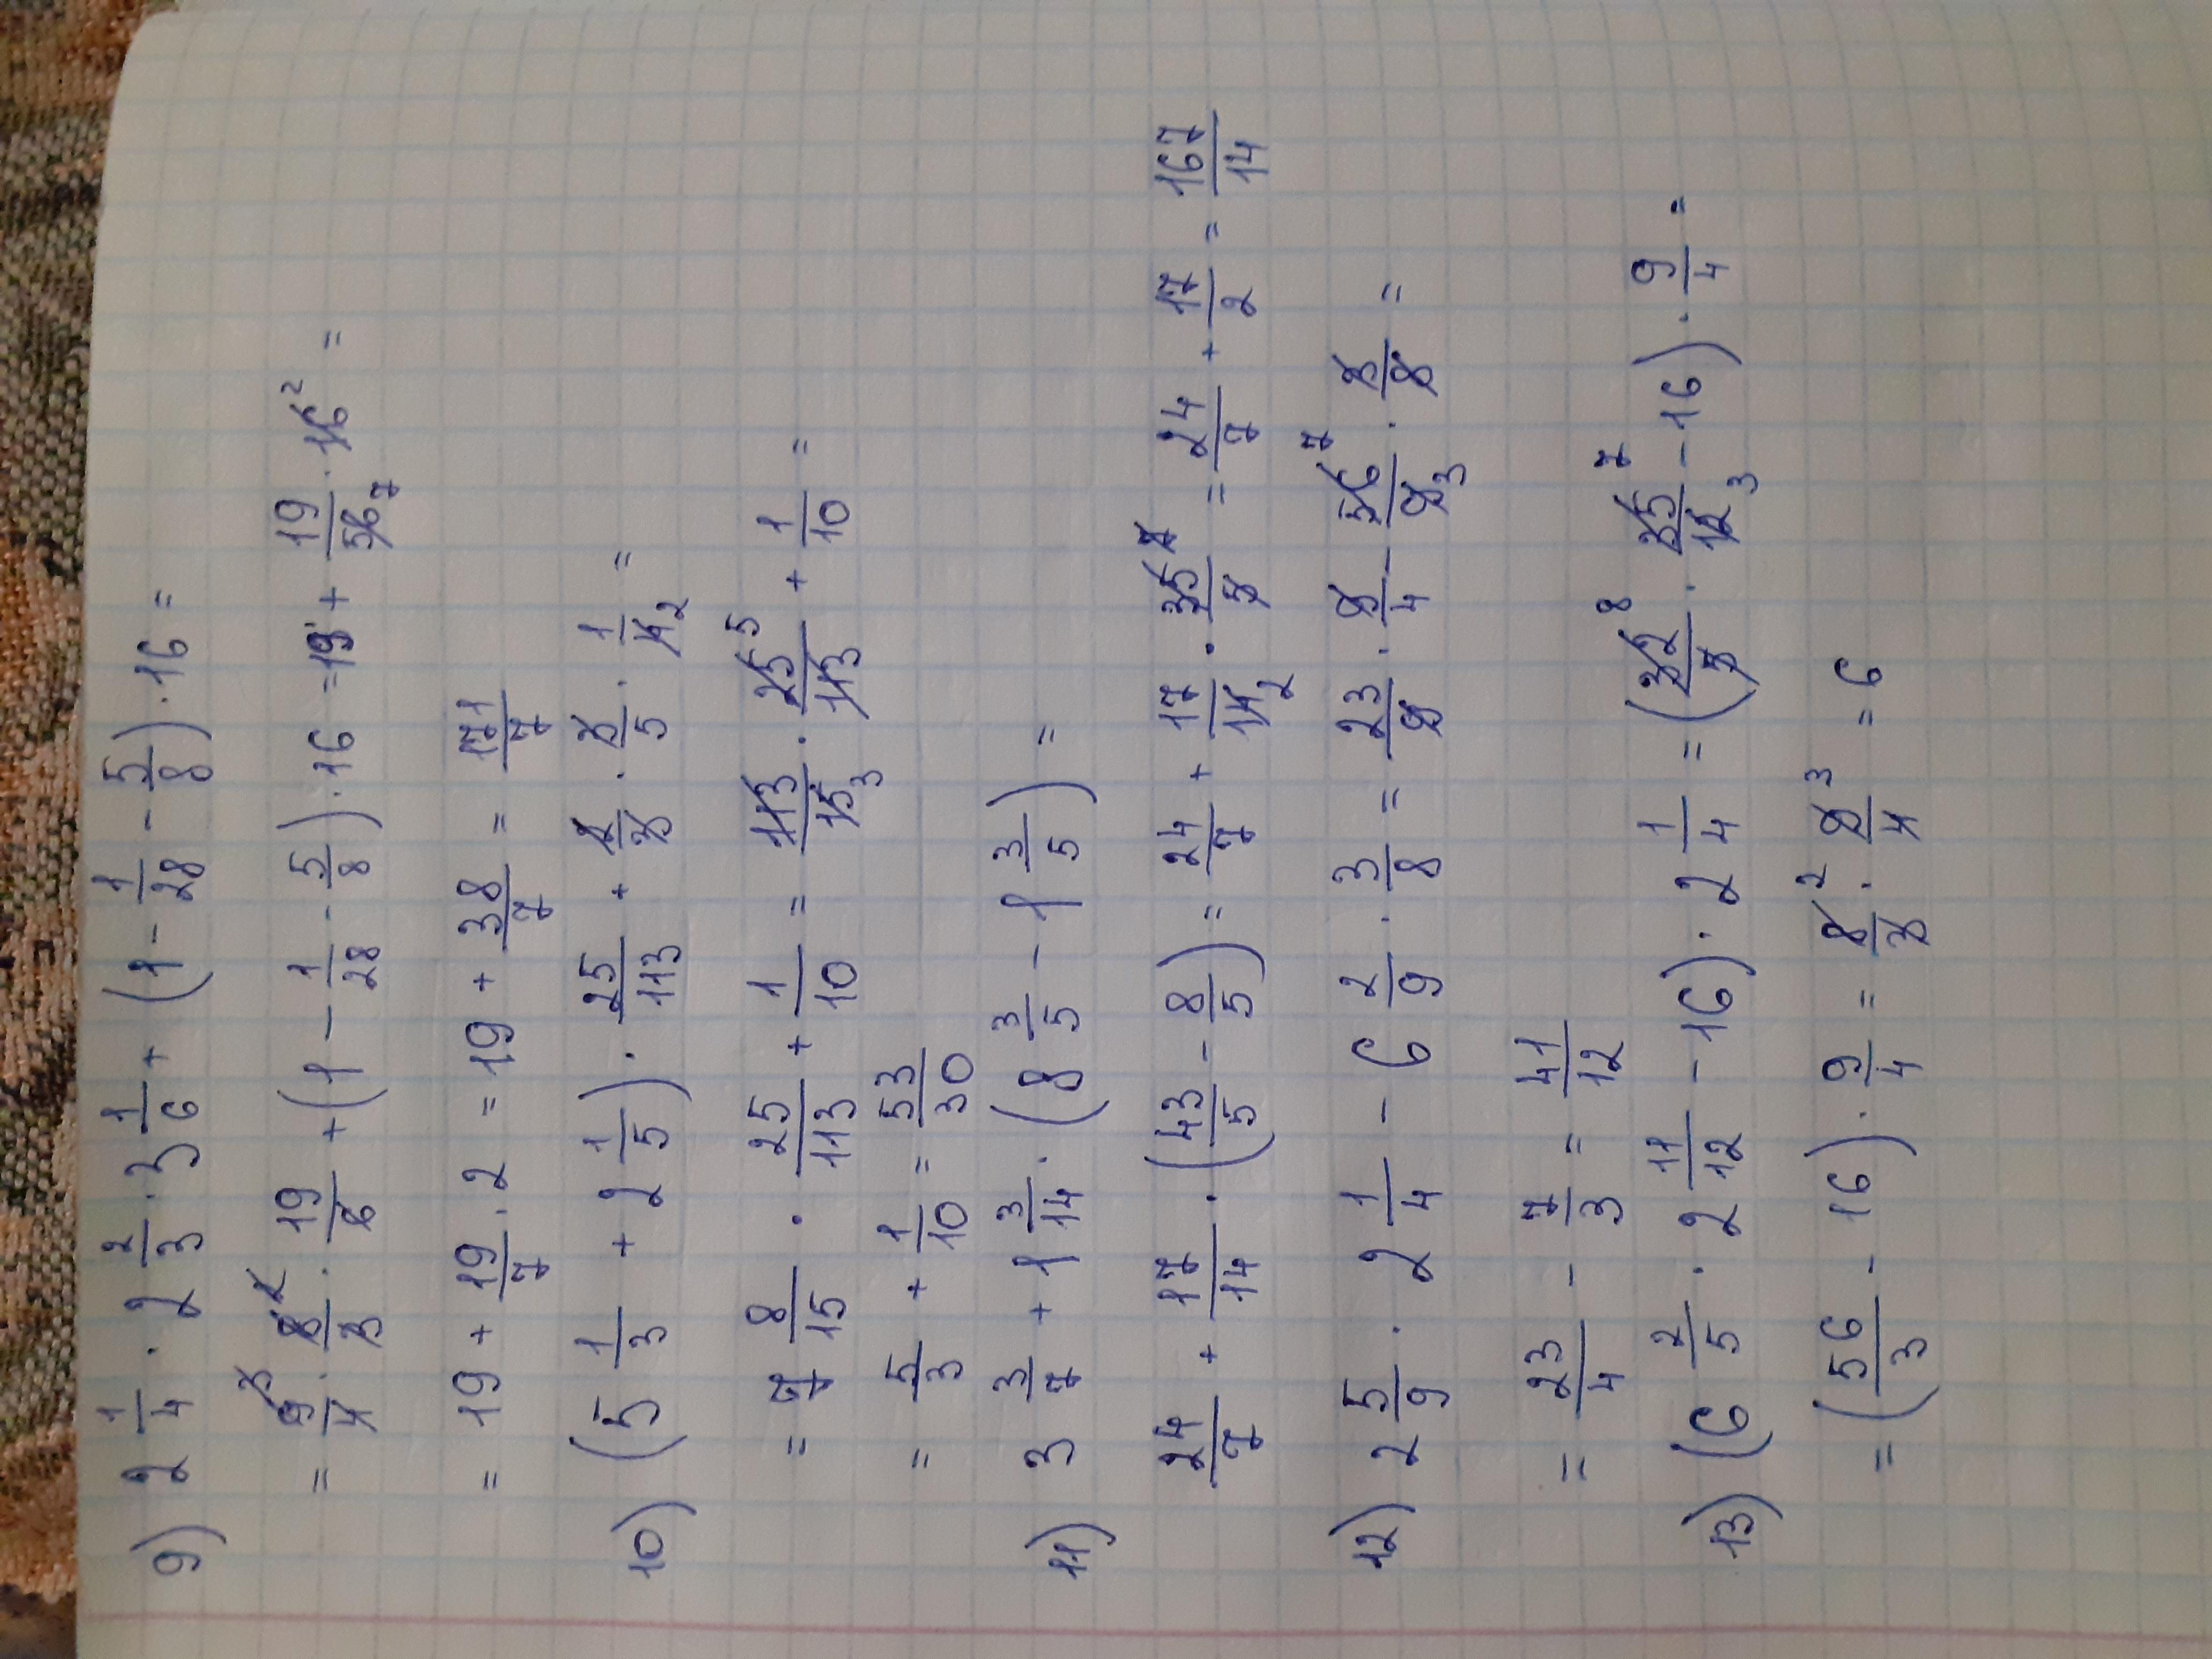 9) 2 1/4 · 2 2/3 · 3 1/6 + (1 - 1/28 - 5/8) · 16 =
= 9/4 · 8/3 · 19/6 + (1 - 1/28 - 5/8) · 16 = 19 + 19/56 7 · 16 2 =
= 19 + 19/7 · 2 = 19 + 38/7 = 171/7
10) (5 1/3 + 2 1/5) · 25/113 + 1/3 · 3/5 · 1/4 2 =
= 7 8/15 · 25/113 + 1/10 = 113/15 3 · 25 5/113 + 1/10 =
= 5/3 + 1/10 = 53/30
11) 3 3/7 + 1 3/14 · (8 3/5 - 1 3/5) =
24/7 + 17/14 · (43/5 - 8/5) = 24/7 + 17/14 2 · 35 7/5 = 24/7 + 17/2 = 167/14
12) 2 5/9 · 2 1/4 - 6 2/9 · 3/8 = 23/9 · 9/4 - 56 7/9 3 · 3/8 =
= 23/4 - 7/3 = 41/12
13) (6 2/5 · 2 11/12 - 16) · 2 1/4 = (32 8/5 · 35 7/12 3 - 16) · 9/4 =
= (56/3 - 16) · 9/4 = 8 2/3 · 9 3/4 = 6